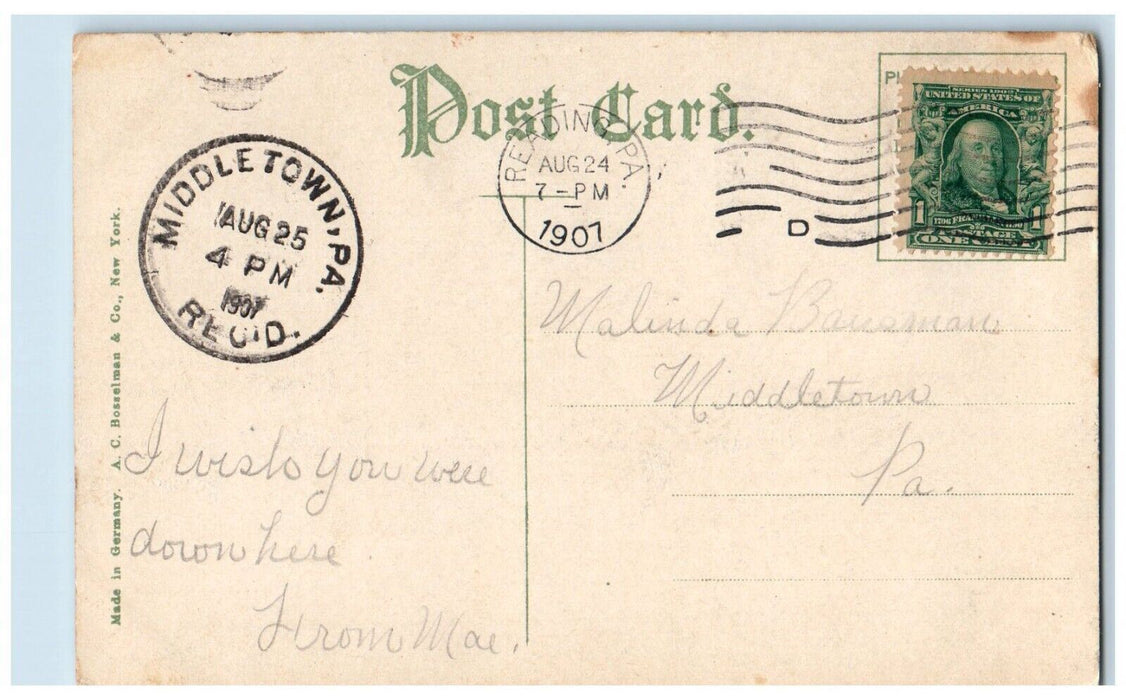 Post Card.
READING, PA.
AUG 24
7 - PM
1907
D
SERIES 1902
UNITED STATES OF
AMERICA
1 1
FRANKLIN
POSTAGE
ONE CENT
MIDDLETOWN, PA.
AUG 25
4 PM
1907
REC'D.
Made in Germany. A. C. Bosselman & Co., New York.
Malinda
Middletown
Pa.
I wish you were
down here.
From Mae.